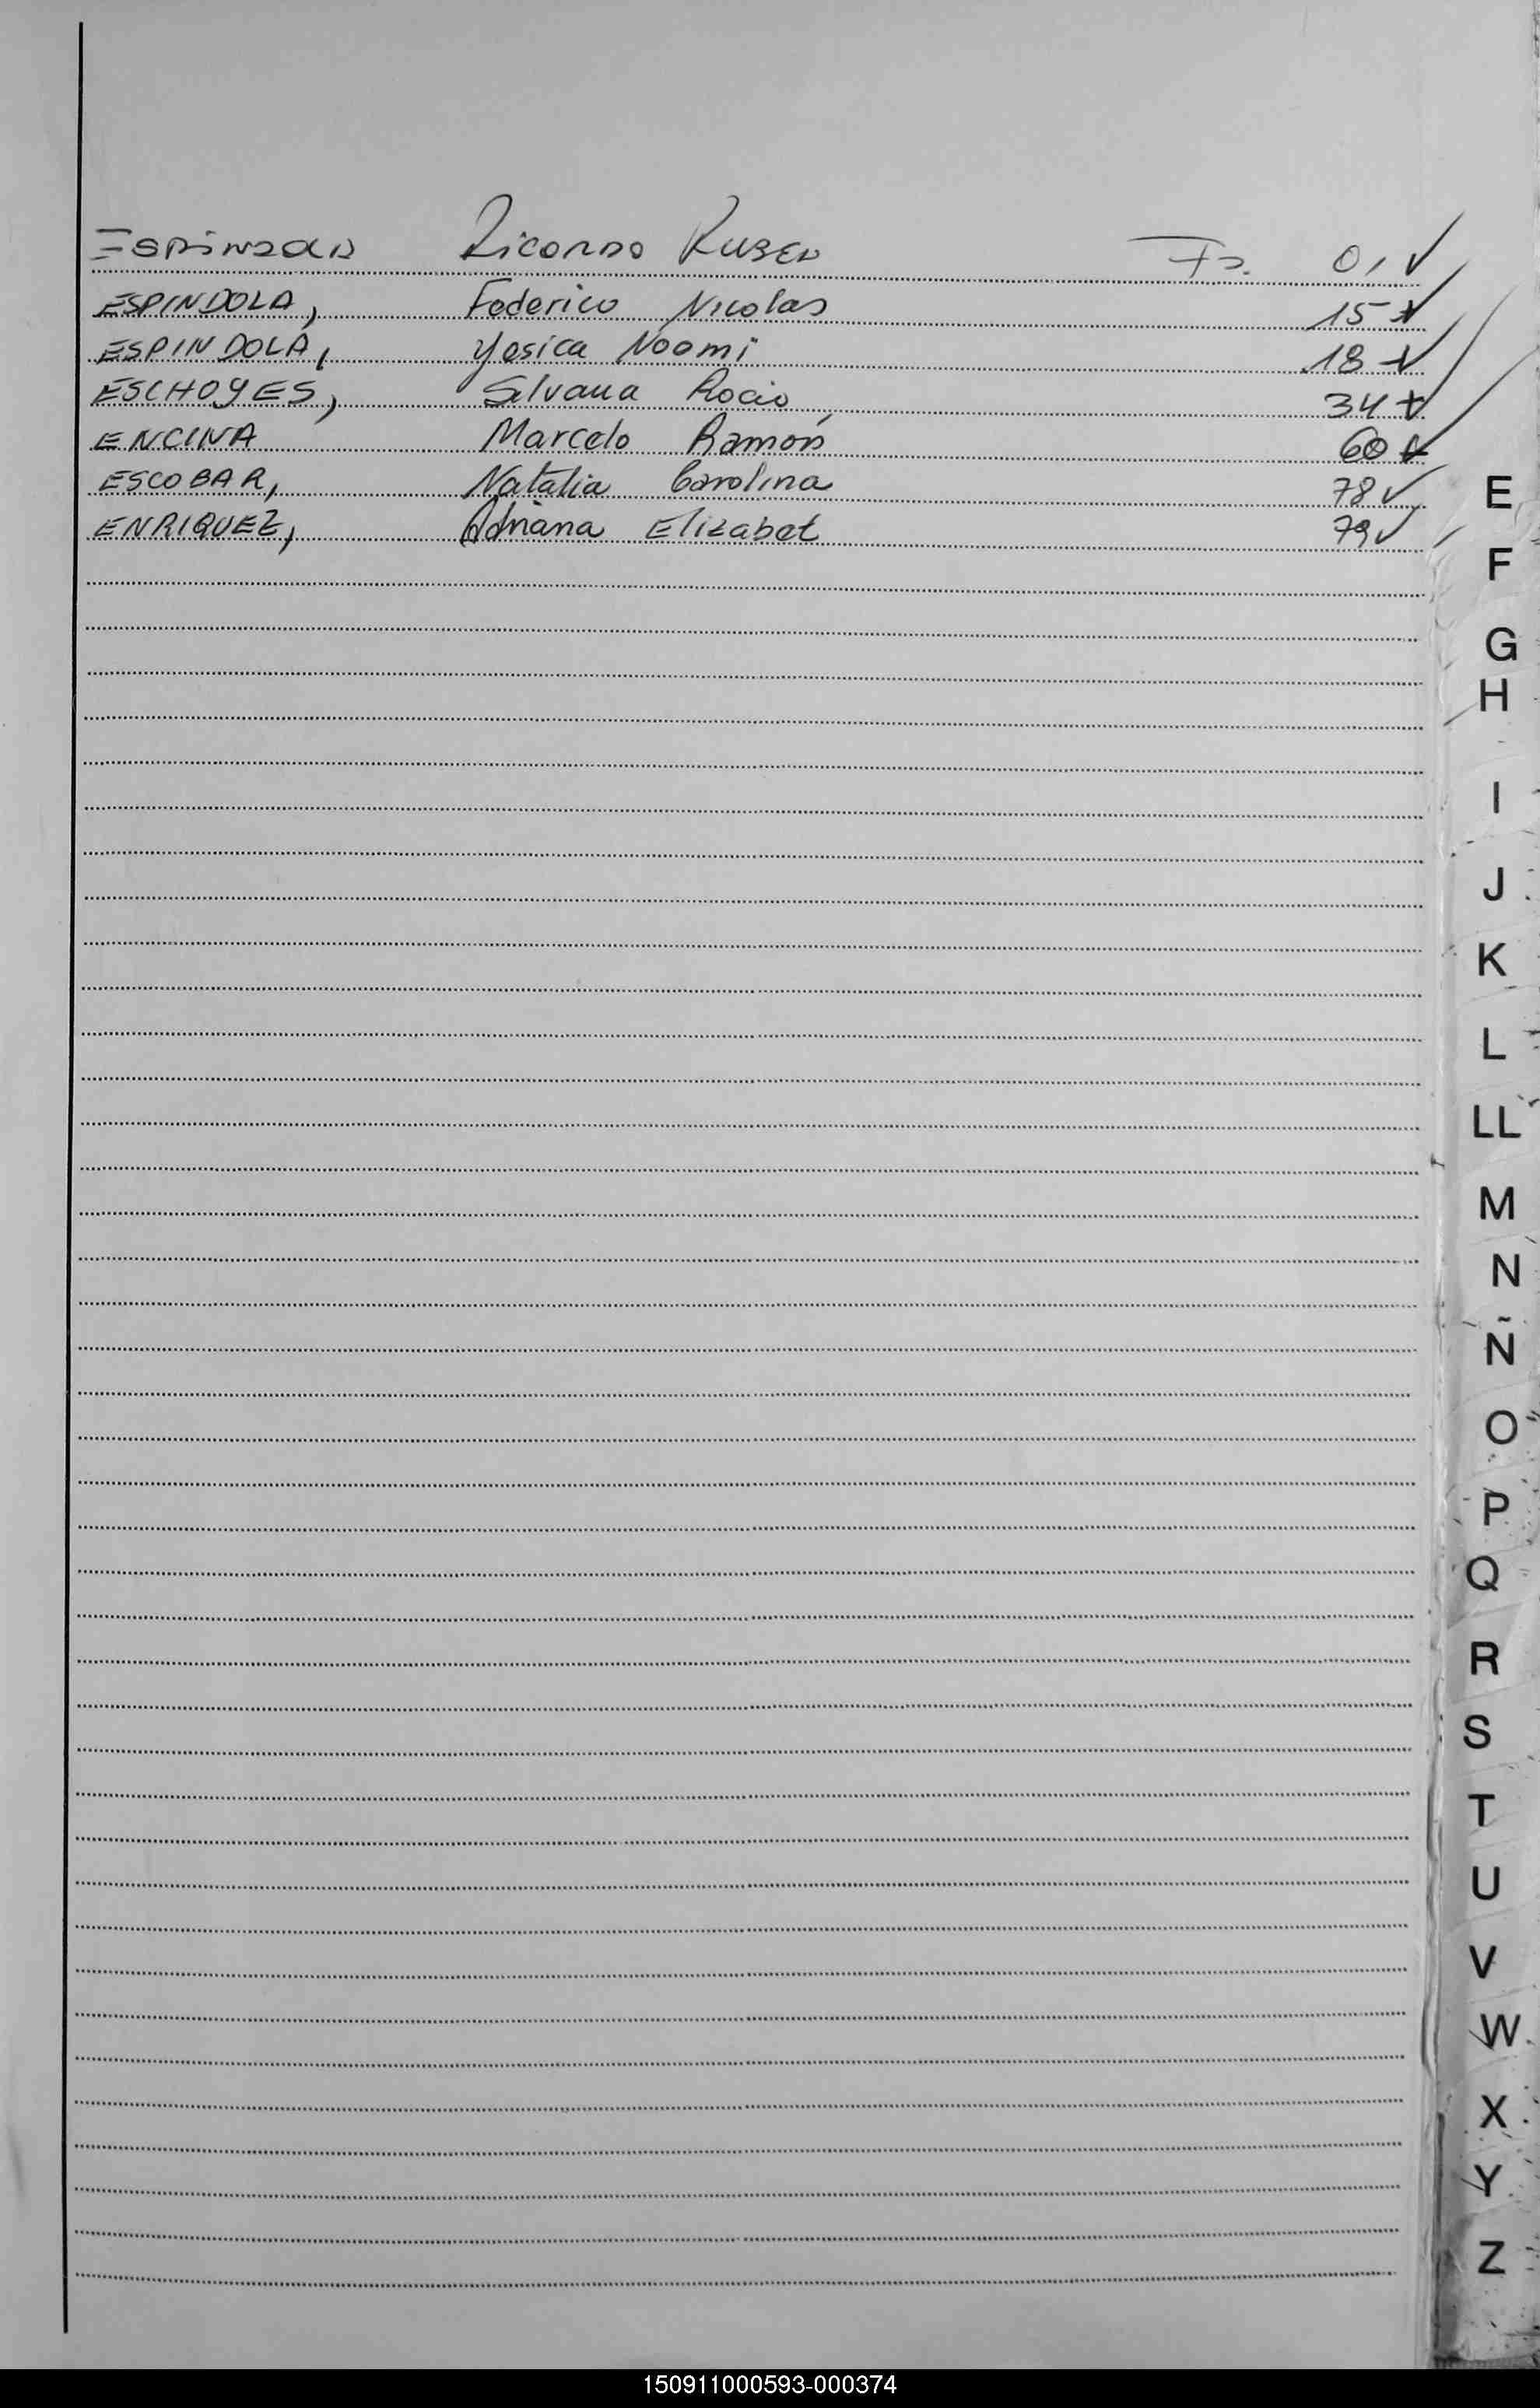 Ricardo Ruben Fs. 01 ✓
ESPINDOLA, Federico Nicolas 15 ✓
ESPINDOLA, Yesica Noomi 18 ✓
ESCHOYES, Silvana Rocio 34 ✓
ENCINA Marcelo Ramón 60 ✓
ESCOBAR, Natalia Carolina 78 ✓
ENRIQUEZ, Adriana Elizabet 79 ✓
E
F
G
H
I
J
K
L
LL
M
N
Ñ
O
P
Q
R
S
T
U
V
W
X
Y
Z
150911000593-000374